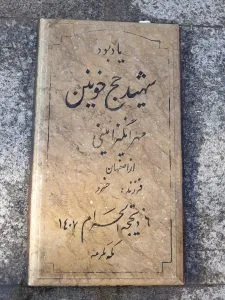 یادبود
شهید حج خونین
مهرانگیز امینی
از اصفهان
فرزند: محمود
۶ ذیحجه الحرام ۱۴۰۷
مکه مکرمه